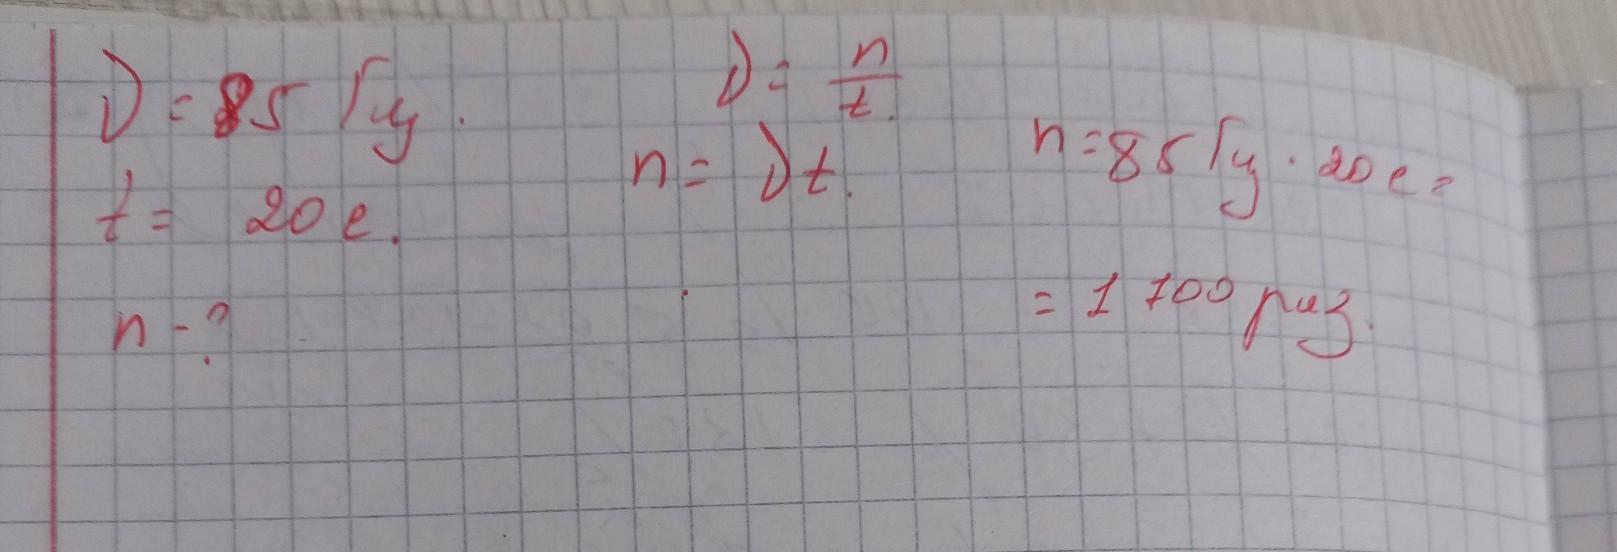 ν = 85 Гц.
t = 20 с.
n - ?
ν = n/t.
n = νt.
n = 85 Гц · 20 с =
= 1 700 раз.